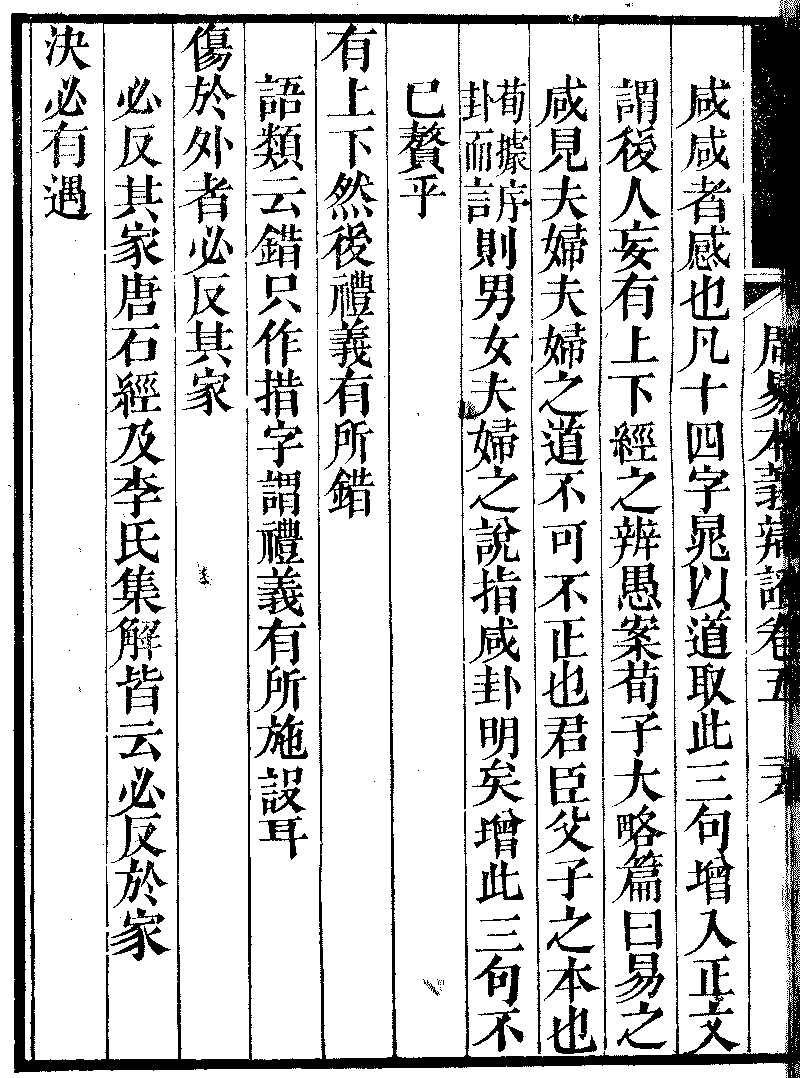 周易本義辨證卷五
咸咸者感也凡十四字晁以道取此三句增入正文
謂後人妄有上下經之辨愚案荀子大略篇曰易之
咸見夫婦夫婦之道不可不正也君臣父子之本也
荀據序卦而言則男女夫婦之說指咸卦明矣增此三句不
已贅乎
有上下然後禮義有所錯
語類云錯只作措字謂禮義有所施設耳
傷於外者必反其家
必反其家唐石經及李氏集解皆云必反於家
決必有遇